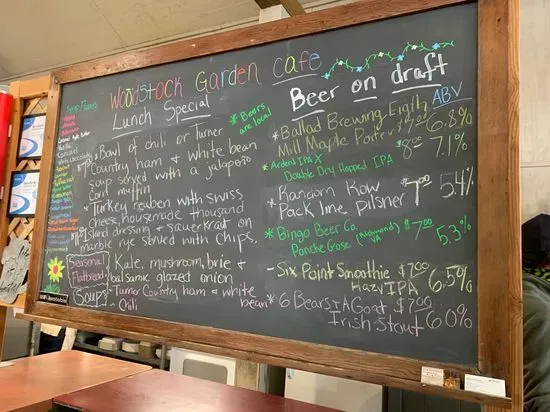 Woodstock Garden Cafe
Lunch Special
* Bowl of chili or Turner
Country ham & white bean
soup served with a jalapeño
corn muffin
* Turkey reuben with swiss
cheese, housemade thousand
island dressing & sauerkraut on
marble rye served with chips.
Seasonal
Flatbread
Kale, mushroom, brie &
balsamic glazed onion
Soup:
- Turner Country ham & white
bean
- Chili
* Beers
are local
Beer on draft
ABV
* Ballad Brewing Eighth
Mill Maple Porter $7.00 6.8%
* Ardent IPA X
Double Dry Hopped IPA $8.00 7.1%
* Random Row
Pack line Pilsner $7.00 5.4%
* Bingo Beer Co. (Richmond,
VA) $7.00
Ponche Gose 5.3%
- Six Point Smoothie $7.00
Hazy IPA 6.5%
* 6 Bears & A Goat $7.00
Irish Stout 6.0%